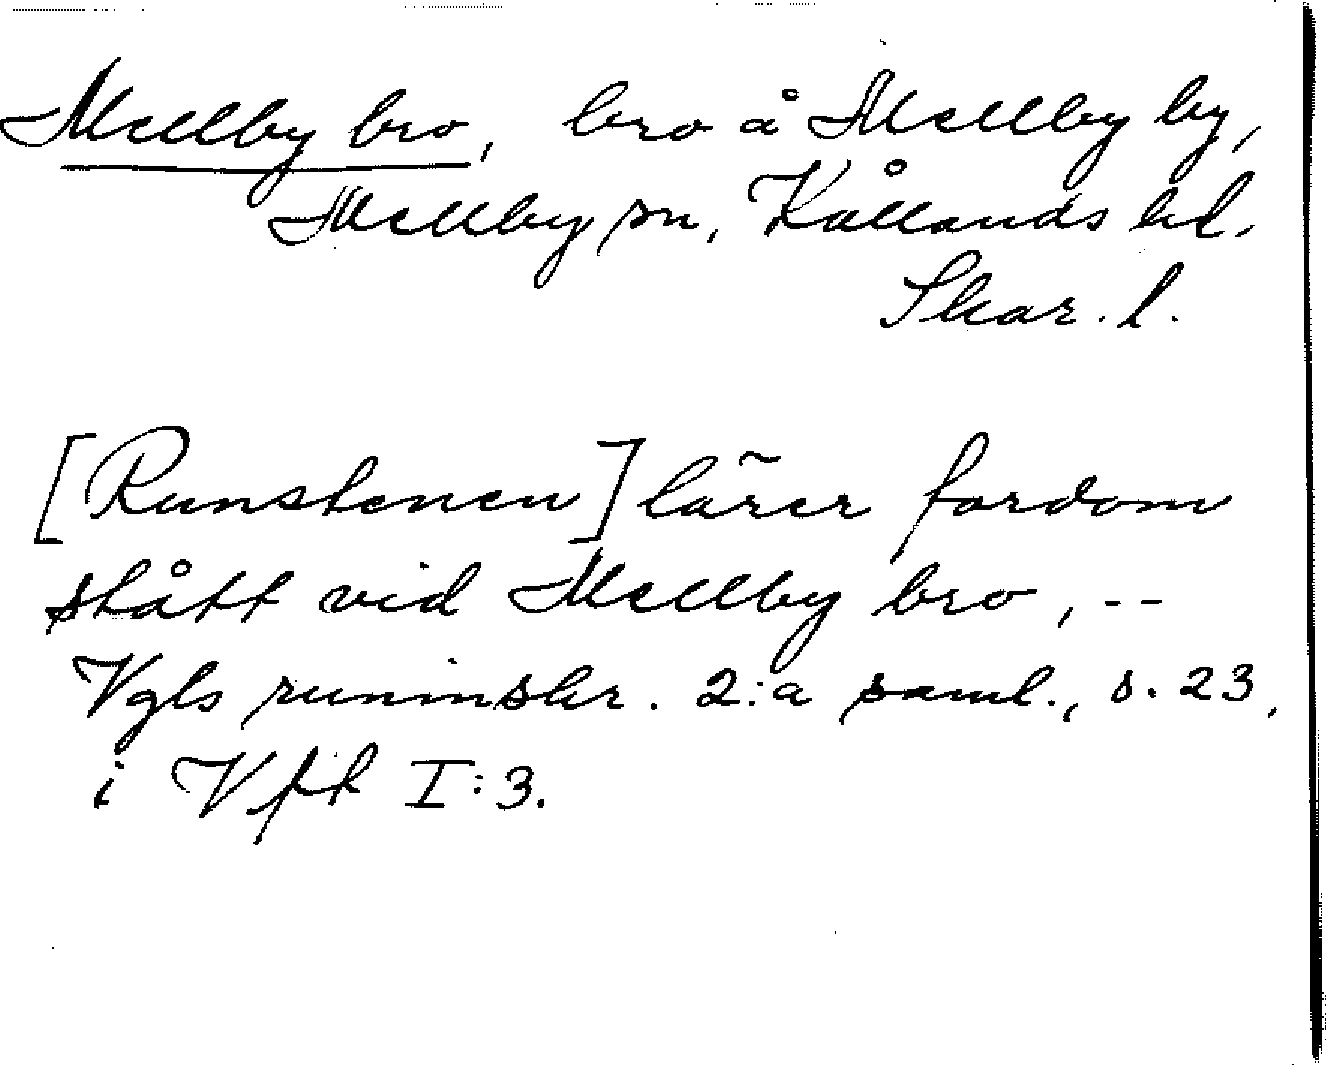 Mellby bro, bro å Mellby by,
Mellby sn, Kållands hd.
Skar. l.
[Runstenen] lärer fordom
stått vid Mellby bro, --
Vgls runinskr. 2:a saml., s. 23,
i Vfft I:3.